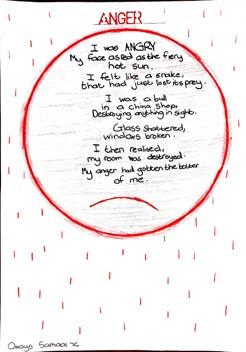 ANGER
I was ANGRY
My face as red as the fiery
hot sun.
I felt like a snake,
that had just lost its prey.
I was a bull
in a china shop,
Destroying anything in sight.
Glass shattered,
windows broken.
I then realised,
my room was destroyed.
My anger had gotten the better
of me.
Samaai